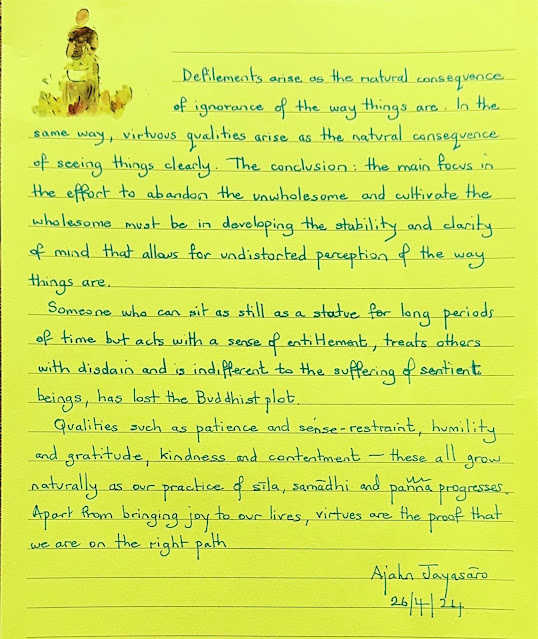 Defilements arise as the natural consequence
of ignorance of the way things are. In the
same way, virtuous qualities arise as the natural consequence
of seeing things clearly. The conclusion: the main focus in
the effort to abandon the unwholesome and cultivate the
wholesome must be in developing the stability and clarity
of mind that allows for undistorted perception of the way
things are.
Someone who can sit as still as a statue for long periods
of time but acts with a sense of entitlement, treats others
with disdain and is indifferent to the suffering of sentient
beings, has lost the Buddhist plot.
Qualities such as patience and sense-restraint, humility
and gratitude, kindness and contentment — these all grow
naturally as our practice of sīla, samādhi and paññā progresses.
Apart from bringing joy to our lives, virtues are the proof that
we are on the right path
Ajahn Jayasāro
26/4/24